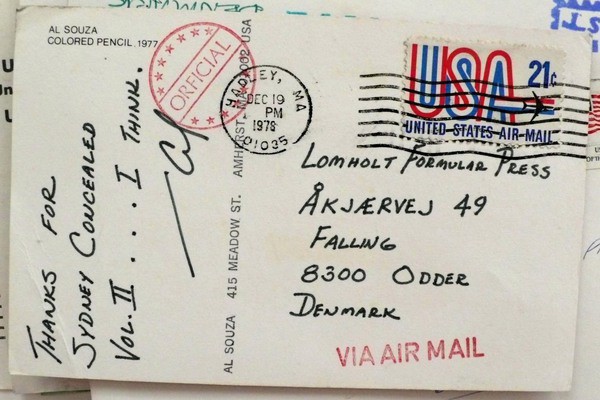 AL SOUZA
COLORED PENCIL, 1977
THANKS FOR
SYDNEY CONCEALED
VOL. II . . . . I THINK.
— al
ORFICIAL
AL SOUZA 415 MEADOW ST. AMHERST, MA 01002 USA
HADLEY, MA
DEC 19
PM
1978
01035
USA 21¢
UNITED STATES AIR MAIL
LOMHOLT FORMULAR PRESS
ÅKJÆRVEJ 49
FALLING
8300 ODDER
DENMARK
VIA AIR MAIL